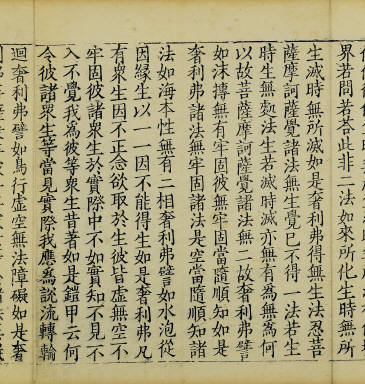 界若問若答此非二法如來所化生時無所
生滅時無所滅如是奢利弗得無生法忍菩
薩摩訶薩覺諸法無生覺已不得一法若生
時生無處法生若滅時滅亦無有為無為何
以故菩薩摩訶薩覺諸法無二故奢利弗譬
如沫摶無有牢固彼無牢固當隨順知如是
奢利弗諸法無牢固諸法是空當隨順知諸
法如海本性無有二相奢利弗譬如水泡從
因緣生以一一因不能得生如是奢利弗凡
有衆生因不正念欲取於生彼皆虛無空不
牢固彼諸衆生於實際中不如實知不見不
入不覺我為彼等衆生昔者如是鎧甲云何
令彼諸衆生等當見實際我應為說流轉輪
迴奢利弗譬如鳥行虛空無法障礙如是奢